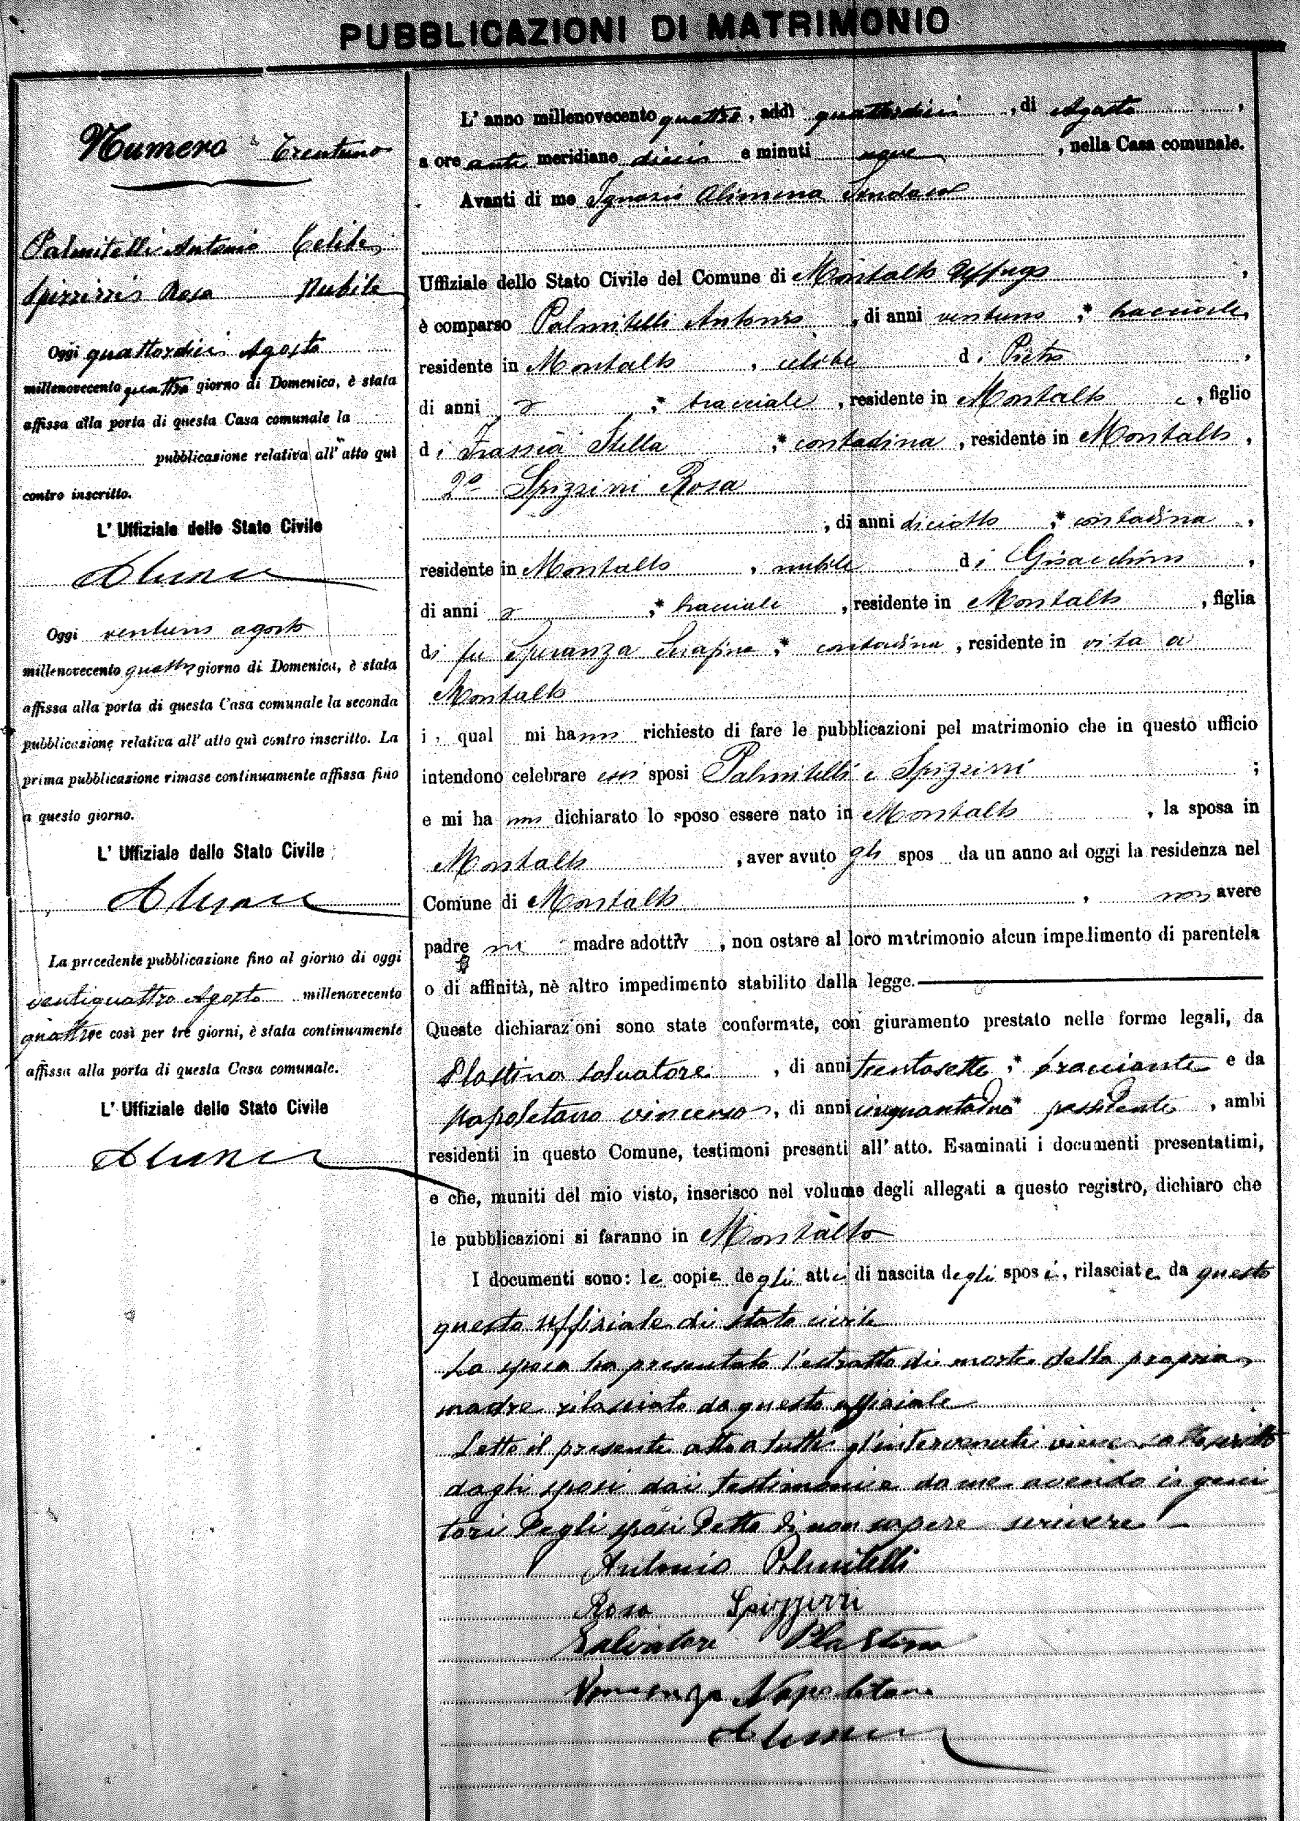 PUBBLICAZIONI DI MATRIMONIO
Numero Trentuno
Palmitelli Antonio Celibe
Spizzirri Rosa Nubile
Oggi quattordici Agosto
millenovecento quattro giorno di Domenica, è stata
affissa alla porta di questa Casa comunale la
pubblicazione relativa all'atto quì
contro inscritto.
L'Uffiziale dello Stato Civile
Alimena
Oggi ventuno agosto
millenovecento quattro giorno di Domenica, è stata
affissa alla porta di questa Casa comunale la seconda
pubblicazione relativa all'atto quì contro inscritto. La
prima pubblicazione rimase continuamente affissa fino
a questo giorno.
L'Uffiziale dello Stato Civile
Alimena
La precedente pubblicazione fino al giorno di oggi
ventiquattro Agosto millenovecento
quattro e così per tre giorni, è stata continuamente
affissa alla porta di questa Casa comunale.
L'Uffiziale dello Stato Civile
Alimena
L'anno millenovecento quattro, addì quattordici, di Agosto,
a ore anti meridiane dieci e minuti, nella Casa comunale.
Avanti di me Ignazio Alimena Sindaco
Uffiziale dello Stato Civile del Comune di Montalto Uffugo,
è comparso Palmitelli Antonio, di anni ventuno, * bracciale,
residente in Montalto, celibe di Pietro,
di anni, * bracciale, residente in Montalto e, figlio
di Frassia Stella, * contadina, residente in Montalto,
2º Spizzirri Rosa
, di anni diciotto, * contadina,
residente in Montalto, nubile di Gioacchino,
di anni, * bracciale, residente in Montalto, figlia
di fu Speranza Serafina, * contadina, residente in vita a
Montalto
i qual mi hanno richiesto di fare le pubblicazioni pel matrimonio che in questo ufficio
intendono celebrare essi sposi Palmitelli e Spizzirri;
e mi hanno dichiarato lo sposo essere nato in Montalto, la sposa in
Montalto, aver avuto gli spos da un anno ad oggi la residenza nel
Comune di Montalto, non avere
padre ni madre adottiv, non ostare al loro matrimonio alcun impedimento di parentela
o di affinità, nè altro impedimento stabilito dalla legge.
Queste dichiarazioni sono state confermate, con giuramento prestato nelle forme legali, da
Plastina Salvatore, di anni trentasette, * bracciante e da
Napoletano Vincenzo, di anni cinquantadue * possidente, ambi
residenti in questo Comune, testimoni presenti all'atto. Esaminati i documenti presentatimi,
e che, muniti del mio visto, inserisco nel volume degli allegati a questo registro, dichiaro che
le pubblicazioni si faranno in Montalto
I documenti sono: le copie degli atti di nascita degli sposi, rilasciate da questo
questo uffiziale di stato civile
La sposa ha presentato l'estratto di morte della propria
madre rilasciato da questo uffiziale
Letto il presente atto a tutti gl'intervenuti viene sottoscritto
dagli sposi dai testimoni e da me avendo i geni
tori degli sposi detto di non sapere scrivere
Antonio Palmitelli
Rosa Spizzirri
Salvatore Plastina
Vincenzo Napoletano
Alimena